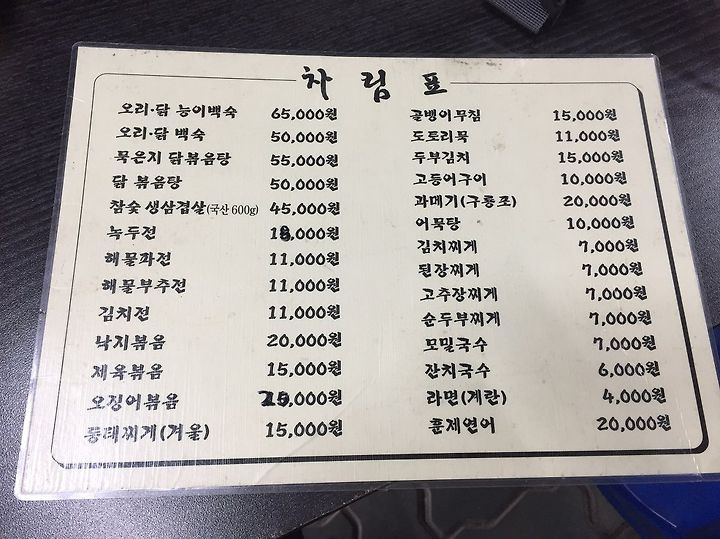 차림표
오리·닭 능이백숙 65,000원
오리·닭 백숙 50,000원
묵은지 닭볶음탕 55,000원
닭 볶음탕 50,000원
참숯 생삼겹살(국산 600g) 45,000원
녹두전 18,000원
해물파전 11,000원
해물부추전 11,000원
김치전 11,000원
낙지볶음 20,000원
제육볶음 15,000원
오징어볶음 20,000원
동태찌게(겨울) 15,000원
골뱅이무침 15,000원
도토리묵 11,000원
두부김치 15,000원
고등어구이 10,000원
과메기(구룡포) 20,000원
어묵탕 10,000원
김치찌게 7,000원
된장찌게 7,000원
고추장찌게 7,000원
순두부찌게 7,000원
모밀국수 7,000원
잔치국수 6,000원
라면(계란) 4,000원
훈제연어 20,000원